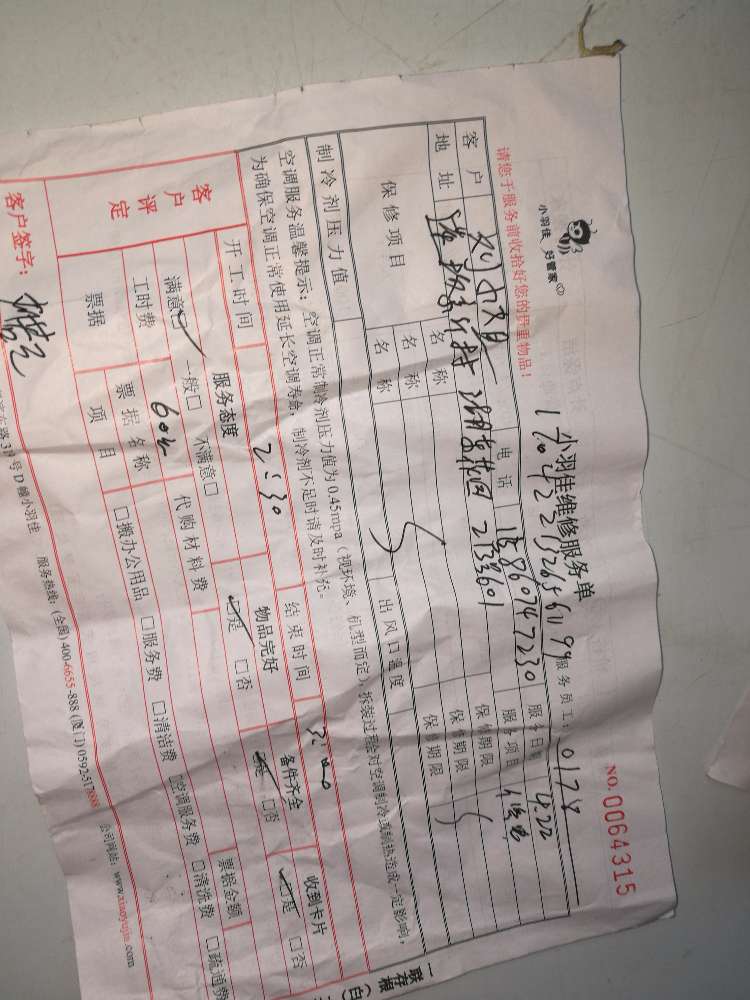 小羽佳 好管家
小羽佳维修服务单
NO. 0064315
请您于服务前收拾好您的贵重物品！
服务员工： 0178
客户 电话 18860747230 服务日期 4.22
地址 2号601 服务项目
保修项目 名称 保修期限
名称 保修期限
名称 保修期限
制冷剂压力值 出风口温度
空调服务温馨提示：空调正常制冷剂压力值为0.45mpa（视环境、机型而定）拆装过程会对空调制冷或制热造成一定影响，
为确保空调正常使用延长空调寿命，制冷剂不足时请及时补充。
开工时间 2:30 结束时间 3:00
客户评定 服务态度 物品完好 备件齐全 收到卡片
满意□ 一般□ 不满意□ □是 □否 □是 □否 □是 □否
工时费 60 代购材料费 票据金额
票据 票据名称
项目 □搬办公用品 □服务费 □清洁费 □空调服务费 □清洗费 □疏通费
客户签字：
号D幢小羽佳 服务热线：(全国) 400-6655-888 (厦门) 0592-517
公司网站：www.xiaoyujia.com
一联存根（白）